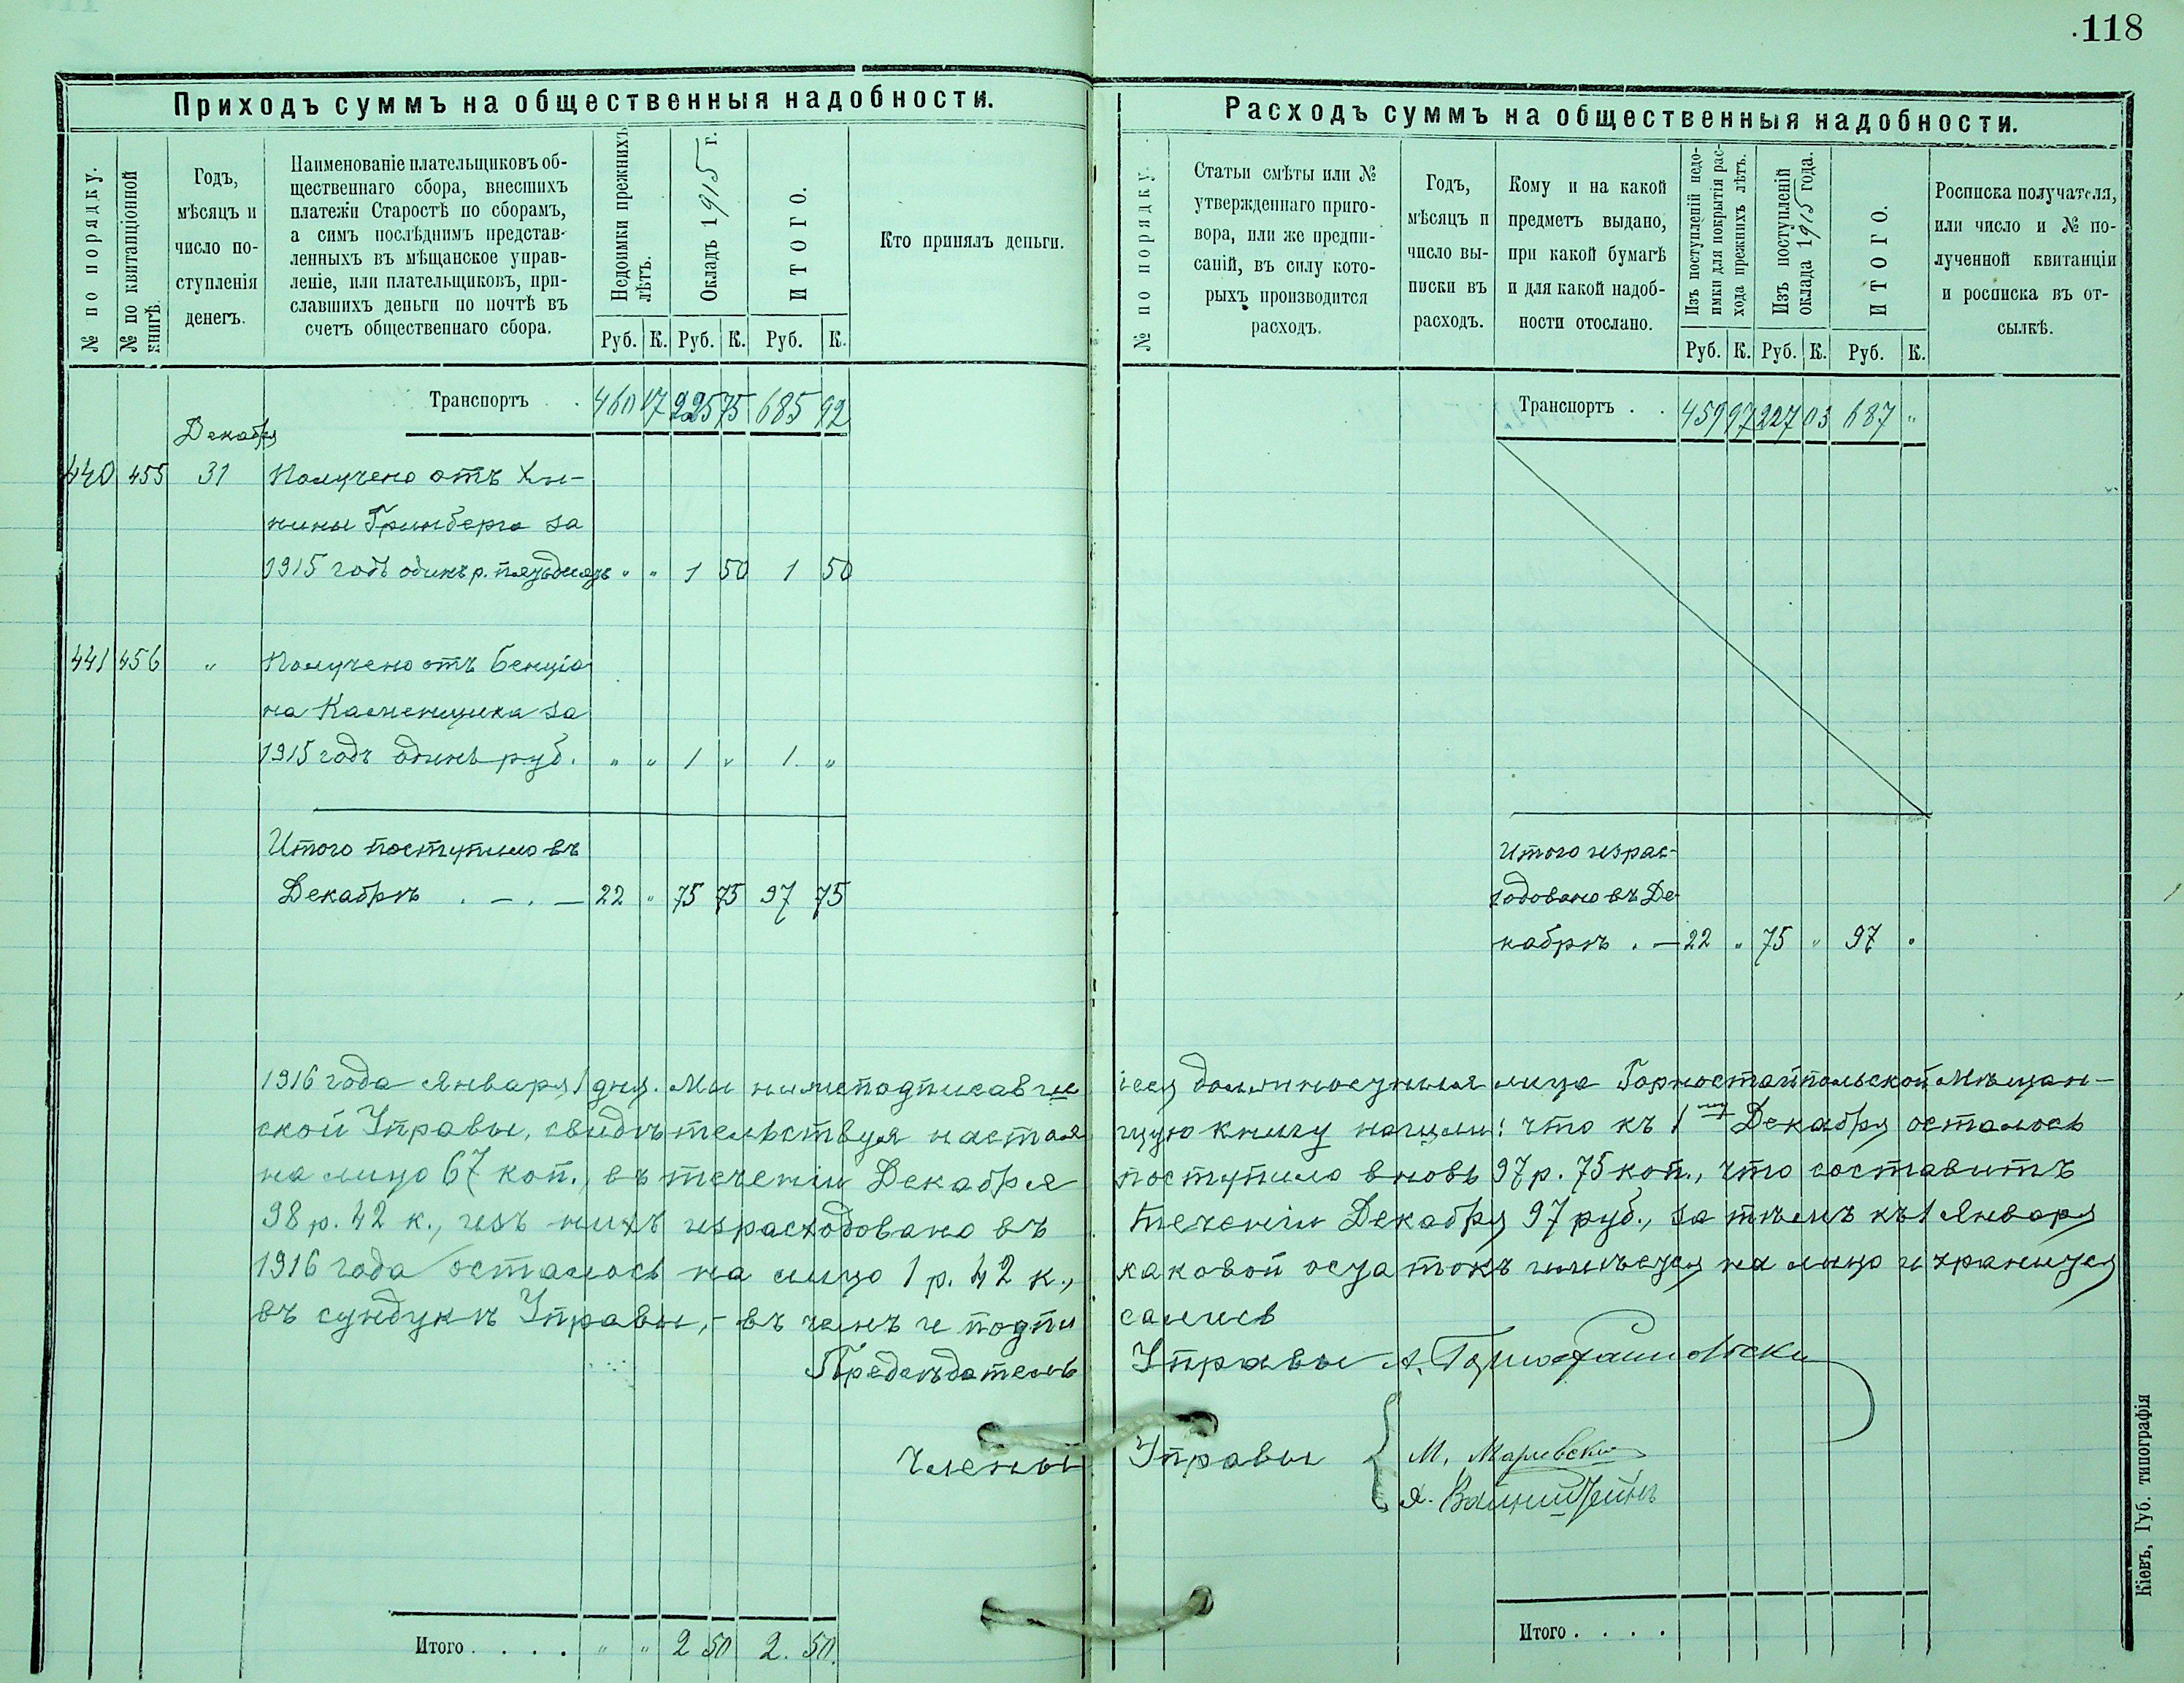 118
Приходъ суммъ на общественныя надобности.
№ по порядку.
№ по квитанціонной книгѣ.
Годъ,
мѣсяцъ и
число по-
ступленія
денегъ.
Наименованіе плательщиковъ об-
щественнаго сбора, внесшихъ
платежи Старостѣ по сборамъ,
а симъ послѣднимъ представ-
ленныхъ въ мѣщанское управ-
леніе, или плательщиковъ, при-
славшихъ деньги по почтѣ въ
счетъ общественнаго сбора.
Недоимки прежнихъ лѣтъ.
Окладъ 1915 г.
ИТОГО.
Кто принялъ деньги.
Руб. К. Руб. К. Руб. К.
Транспортъ . . 460 17 225 75 685 92
Декабря
440 455 31 Получено отъ Хы-
нины Гринберга за
1915 годъ одинъ р. пятьдесятъ " " 1 50 1 50
441 456 " Получено отъ Бенціо
на Каменщика за
1915 годъ одинъ руб. " " 1 " 1 "
Итого поступило въ
Декабрѣ . — . — 22 " 75 75 97 75
Расходъ суммъ на общественныя надобности.
№ по порядку.
Статьи смѣты или №
утвержденнаго приго-
вора, или же предпи-
саній, въ силу кото-
рыхъ производится
расходъ.
Годъ,
мѣсяцъ и
число вы-
писки въ
расходъ.
Кому и на какой
предметъ выдано,
при какой бумагѣ
и для какой надоб-
ности отослано.
Изъ поступленій недо-
имки для покрытія рас-
хода прежнихъ лѣтъ.
Изъ поступленій
оклада 1915 года.
ИТОГО.
Росписка получателя,
или число и № по-
лученной квитанціи
и росписка въ от-
сылкѣ.
Руб. К. Руб. К. Руб. К.
Транспортъ . . 459 97 227 03 687 "
Итого израс-
ходовано въ Де-
кабрѣ . — 22 " 75 " 97 "
1916 года Января 1 дня. Мы нижеподписавшіеся должностныя лица Горностайпольской Мѣщан-
ской Управы, свидѣтельствуя настоящую книгу нашли: что къ 1му Декабря осталось
на лицо 67 коп., въ теченіи Декабря поступило вновь 97 р. 75 коп., что составитъ
98 р. 42 к., изъ нихъ израсходовано въ теченіи Декабря 97 руб., за тѣмъ къ 1 Января
1916 года осталось на лицо 1 р. 42 к., каковой остатокъ имѣется на лицо и хранится
въ сундукѣ Управы,- въ чемъ и подписались
Предсѣдатель Управы А. Горностайпольскій
Члены Управы { М. Маревскій
Я. Вайнштейнъ
Итого . . . . " " 2 50 2. 50.
Итого . . . .
Кіевъ, Губ. типографія